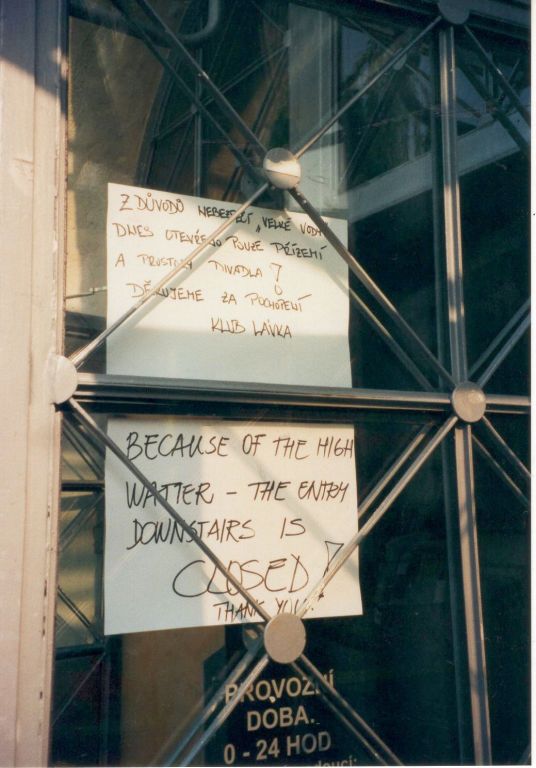 Z DŮVODŮ NEBEZPEČÍ „VELKÉ VODY"
DNES OTEVŘENO POUZE PŘÍZEMÍ
A PROSTORY DIVADLA !
DĚKUJEME ZA POCHOPENÍ
KLUB LÁVKA
BECAUSE OF THE HIGH
WATTER – THE ENTRY
DOWNSTAIRS IS
CLOSED!
THANK YOU!
PROVOZNÍ
DOBA.
0 - 24 HOD